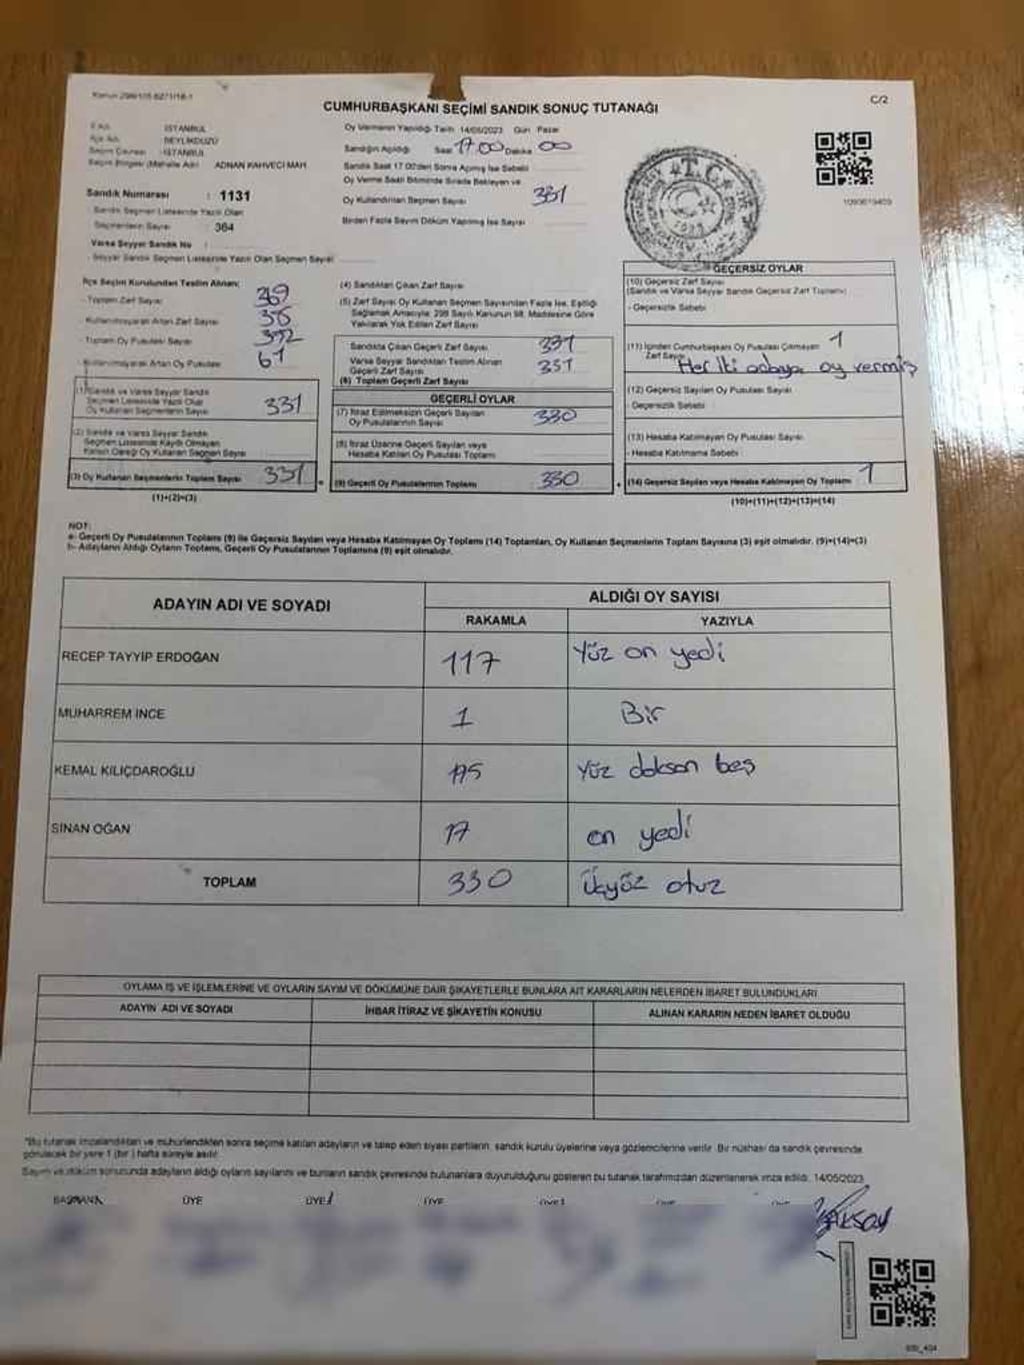 Kanun 298/105 6271/18-1
CUMHURBAŞKANI SEÇİMİ SANDIK SONUÇ TUTANAĞI
C/2
İl Adı İSTANBUL
İlçe Adı BEYLİKDÜZÜ
Seçim Çevresi İSTANBUL
Seçim Bölgesi (Mahalle Adı) ADNAN KAHVECİ MAH.
Sandık Numarası : 1131
Sandık Seçmen Listesinde Yazılı Olan
Seçmenlerin Sayısı 364
Varsa Seyyar Sandık No :
Seyyar Sandık Seçmen Listesinde Yazılı Olan Seçmen Sayısı
Oy Vermenin Yapıldığı Tarih 14/05/2023 Gün Pazar
Sandığın Açıldığı Saat 17.00 Dakika 00
Sandık Saat 17.00'den Sonra Açılmış İse Sebebi
Oy Verme Saati Bitiminde Sırada Bekleyen ve
Oy Kullandırılan Seçmen Sayısı 331
Birden Fazla Sayım Döküm Yapılmış İse Sayısı
T.C.
İlçe Seçim Kurulundan Teslim Alınan:
Toplam Zarf Sayısı 369
Kullanılmayarak Artan Zarf Sayısı
Toplam Oy Pusulası Sayısı
Kullanılmayarak Artan Oy Pusulası 61
(1) Sandık ve Varsa Seyyar Sandık
Seçmen Listesinde Yazılı Olup
Oy Kullanan Seçmenlerin Sayısı 331
(2) Sandık ve Varsa Seyyar Sandık
Seçmen Listesinde Kayıtlı Olmayan
Kanun Gereği Oy Kullanan Seçmen Sayısı
(3) Oy Kullanan Seçmenlerin Toplam Sayısı 331
(1)+(2)=(3)
(4) Sandıktan Çıkan Zarf Sayısı
(5) Zarf Sayısı Oy Kullanan Seçmen Sayısından Fazla İse, Eşitliği
Sağlamak Amacıyla; 298 Sayılı Kanunun 98. Maddesine Göre
Yakılarak Yok Edilen Zarf Sayısı
Sandıkta Çıkan Geçerli Zarf Sayısı 331
Varsa Seyyar Sandıktan Teslim Alınan
Geçerli Zarf Sayısı 331
(6) Toplam Geçerli Zarf Sayısı
GEÇERLİ OYLAR
(7) İtiraz Edilmeksizin Geçerli Sayılan
Oy Pusulasının Sayısı 330
(8) İtiraz Üzerine Geçerli Sayılan veya
Hesaba Katılan Oy Pusulası Toplamı
(9) Geçerli Oy Pusulalarının Toplamı 330
GEÇERSİZ OYLAR
(10) Geçersiz Zarf Sayısı
(Sandık ve Varsa Seyyar Sandık Geçersiz Zarf Toplamı)
- Geçersizlik Sebebi
(11) İçinden Cumhurbaşkanı Oy Pusulası Çıkmayan 1
Zarf Sayısı Her iki adaya oy vermiş
(12) Geçersiz Sayılan Oy Pusulası Sayısı
Geçersizlik Sebebi
(13) Hesaba Katılmayan Oy Pusulası Sayısı
- Hesaba Katılmama Sebebi
(14) Geçersiz Sayılan veya Hesaba Katılmayan Oy Toplamı 1
(10)+(11)+(12)+(13)=(14)
NOT:
a- Geçerli Oy Pusulalarının Toplamı (9) ile Geçersiz Sayılan veya Hesaba Katılmayan Oy Toplamı (14) Toplamları, Oy Kullanan Seçmenlerin Toplam Sayısına (3) eşit olmalıdır. (9)+(14)=(3)
b- Adayların Aldığı Oyların Toplamı, Geçerli Oy Pusulalarının Toplamına (9) eşit olmalıdır.
ADAYIN ADI VE SOYADI
ALDIĞI OY SAYISI
RAKAMLA YAZIYLA
RECEP TAYYİP ERDOĞAN 117 Yüz on yedi
MUHARREM İNCE 1 Bir
KEMAL KILIÇDAROĞLU 195 Yüz doksan beş
SİNAN OĞAN 17 on yedi
TOPLAM 330 Üçyüz otuz
OYLAMA İŞ VE İŞLEMLERİNE VE OYLARIN SAYIM VE DÖKÜMÜNE DAİR ŞİKAYETLERLE BUNLARA AİT KARARLARIN NELERDEN İBARET BULUNDUKLARI
ADAYIN ADI VE SOYADI İHBAR İTİRAZ VE ŞİKAYETİN KONUSU ALINAN KARARIN NEDEN İBARET OLDUĞU
"Bu tutanak imzalandıktan ve mühürlendikten sonra seçime katılan adayların ve talep eden siyasi partilerin, sandık kurulu üyelerine veya gözlemcilerine verilir. Bir nüshası da sandık çevresinde
görülecek bir yere 1 (bir) hafta süreyle asılır.
Sayım ve döküm sonucunda adayların aldığı oyların sayılarını ve bunların sandık çevresinde bulunanlara duyurulduğunu gösteren bu tutanak tarafımızdan düzenlenerek imza edildi. 14/05/2023
BAŞKAN ÜYE ÜYE ÜYE
AKSOY